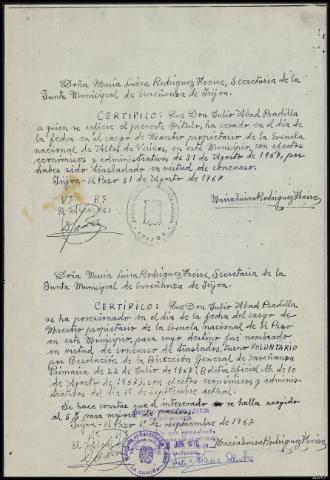 Doña María Luisa Rodríguez Freire, Secretaria de la
Junta Municipal de Enseñanza de Irijoa.
CERTIFICO: Que Don Julio Abad Pradilla
a quien se refiere el presente Título, ha cesado en el día de
la fecha en el cargo de Maestro propietario de la Escuela
nacional de Altos de Virinos, en este Municipio, con efectos
económicos y administrativos de 31 de Agosto de 1967, por
haber sido trasladado en virtud de concurso.
Irijoa - El Pazo 31 de Agosto de 1967
Vº Bº
El Alcalde
María Luisa Rodríguez Freire
Doña María Luisa Rodríguez Freire, Secretaria de la
Junta Municipal de Enseñanza de Irijoa.
CERTIFICO: Que Don Julio Abad Pradilla
se ha posesionado en el día de la fecha del cargo de
Maestro propietario de la Escuela nacional de El Pazo
en este Municipio, para cuyo destino fué nombrado
en virtud de concurso de traslados, turno VOLUNTARIO
por Resolución de la Dirección General de Enseñanza
Primaria de 22 de Julio de 1967 (Boletín Oficial M. de 10
de Agosto de 1967), con efectos económicos y adminis-
trativos del día 1º de Septiembre actual.
Se hace constar que el interesado se halla acogido
al 5% para mejora de
Irijoa - Pazo 1º de Septiembre 1967
Vº Bº
El Alcalde
María Luisa Rodríguez Freire
LA CORUÑA